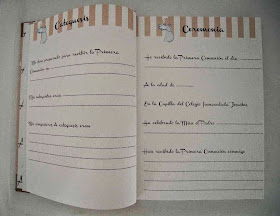 Catequesis
Me han preparado para recibir la Primera
Comunión en
Mis catequistas eran
Mis compañeros de catequesis eran
Ceremonia
He recibido la Primera Comunión el día
A la edad de
En la Capilla del Colegio Inmaculada Jesuitas
Ha celebrado la Misa el Padre
Han recibido la Primera Comunión conmigo